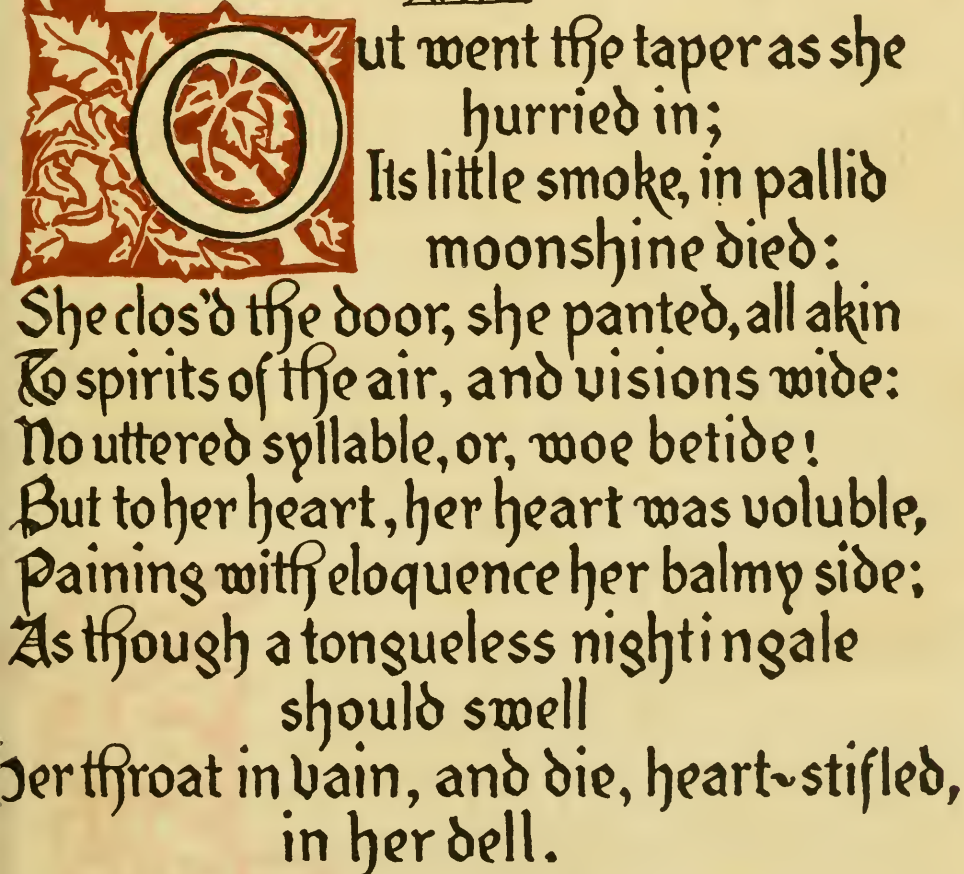 Out went the taper as she
hurried in;
Its little smoke, in pallid
moonshine died:
She clos'd the door, she panted, all akin
To spirits of the air, and visions wide:
No uttered syllable, or, woe betide!
But to her heart, her heart was voluble,
Paining with eloquence her balmy side;
As though a tongueless nightingale
should swell
Her throat in vain, and die, heart-stifled,
in her dell.